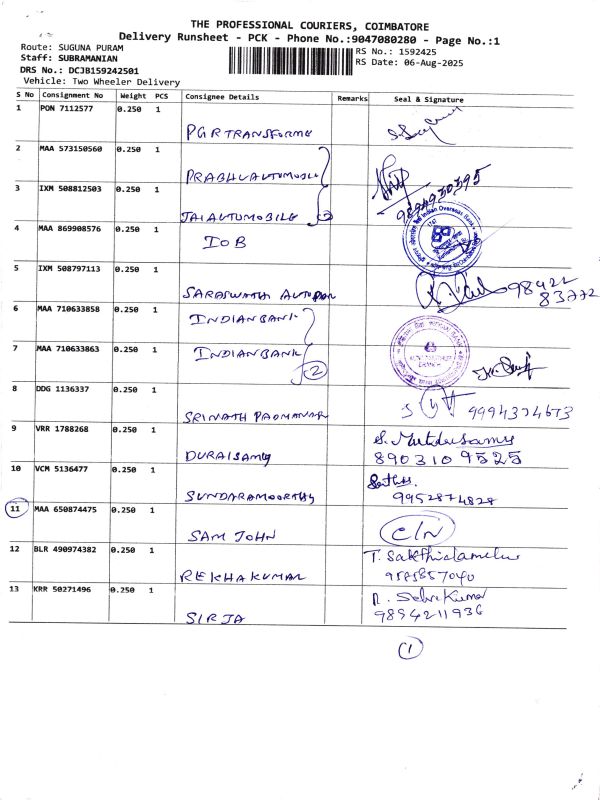 THE PROFESSIONAL COURIERS, COIMBATORE
Delivery Runsheet - PCK - Phone No.:9047080280 - Page No.:1
Route: SUGUNA PURAM
RS No.: 1592425
Staff: SUBRAMANIAN
RS Date: 06-Aug-2025
DRS No.: DCJB159242501
Vehicle: Two Wheeler Delivery
S No Consignment No Weight PCS Consignee Details Remarks Seal & Signature
1 PON 7112577 0.250 1 PGR TRANSFORME
2 MAA 573150560 0.250 1 PRABHU AUTOMOBILE
3 IXM 508812503 0.250 1 JAI AUTOMOBILE 2 9894930395
4 MAA 869908576 0.250 1 IOB Indian Overseas Bank
5 IXM 508797113 0.250 1 SARASWATHI 98422 83772
6 MAA 710633858 0.250 1 INDIAN BANK
7 MAA 710633863 0.250 1 INDIAN BANK 2 BRANCH
8 DDG 1136337 0.250 1 SRINATH PADMANAB 9994374673
9 VRR 1788268 0.250 1 DURAISAMY S. Muthusamy
8903109525
10 VCM 5136477 0.250 1 SUNDARAMOORTHY
9952874828
11 MAA 650874475 0.250 1 SAM JOHN C/N
12 BLR 490974382 0.250 1 REKHA KUMAR T.
9585857040
13 KRR 50271496 0.250 1 SIRJA Kumar
9894211936
1